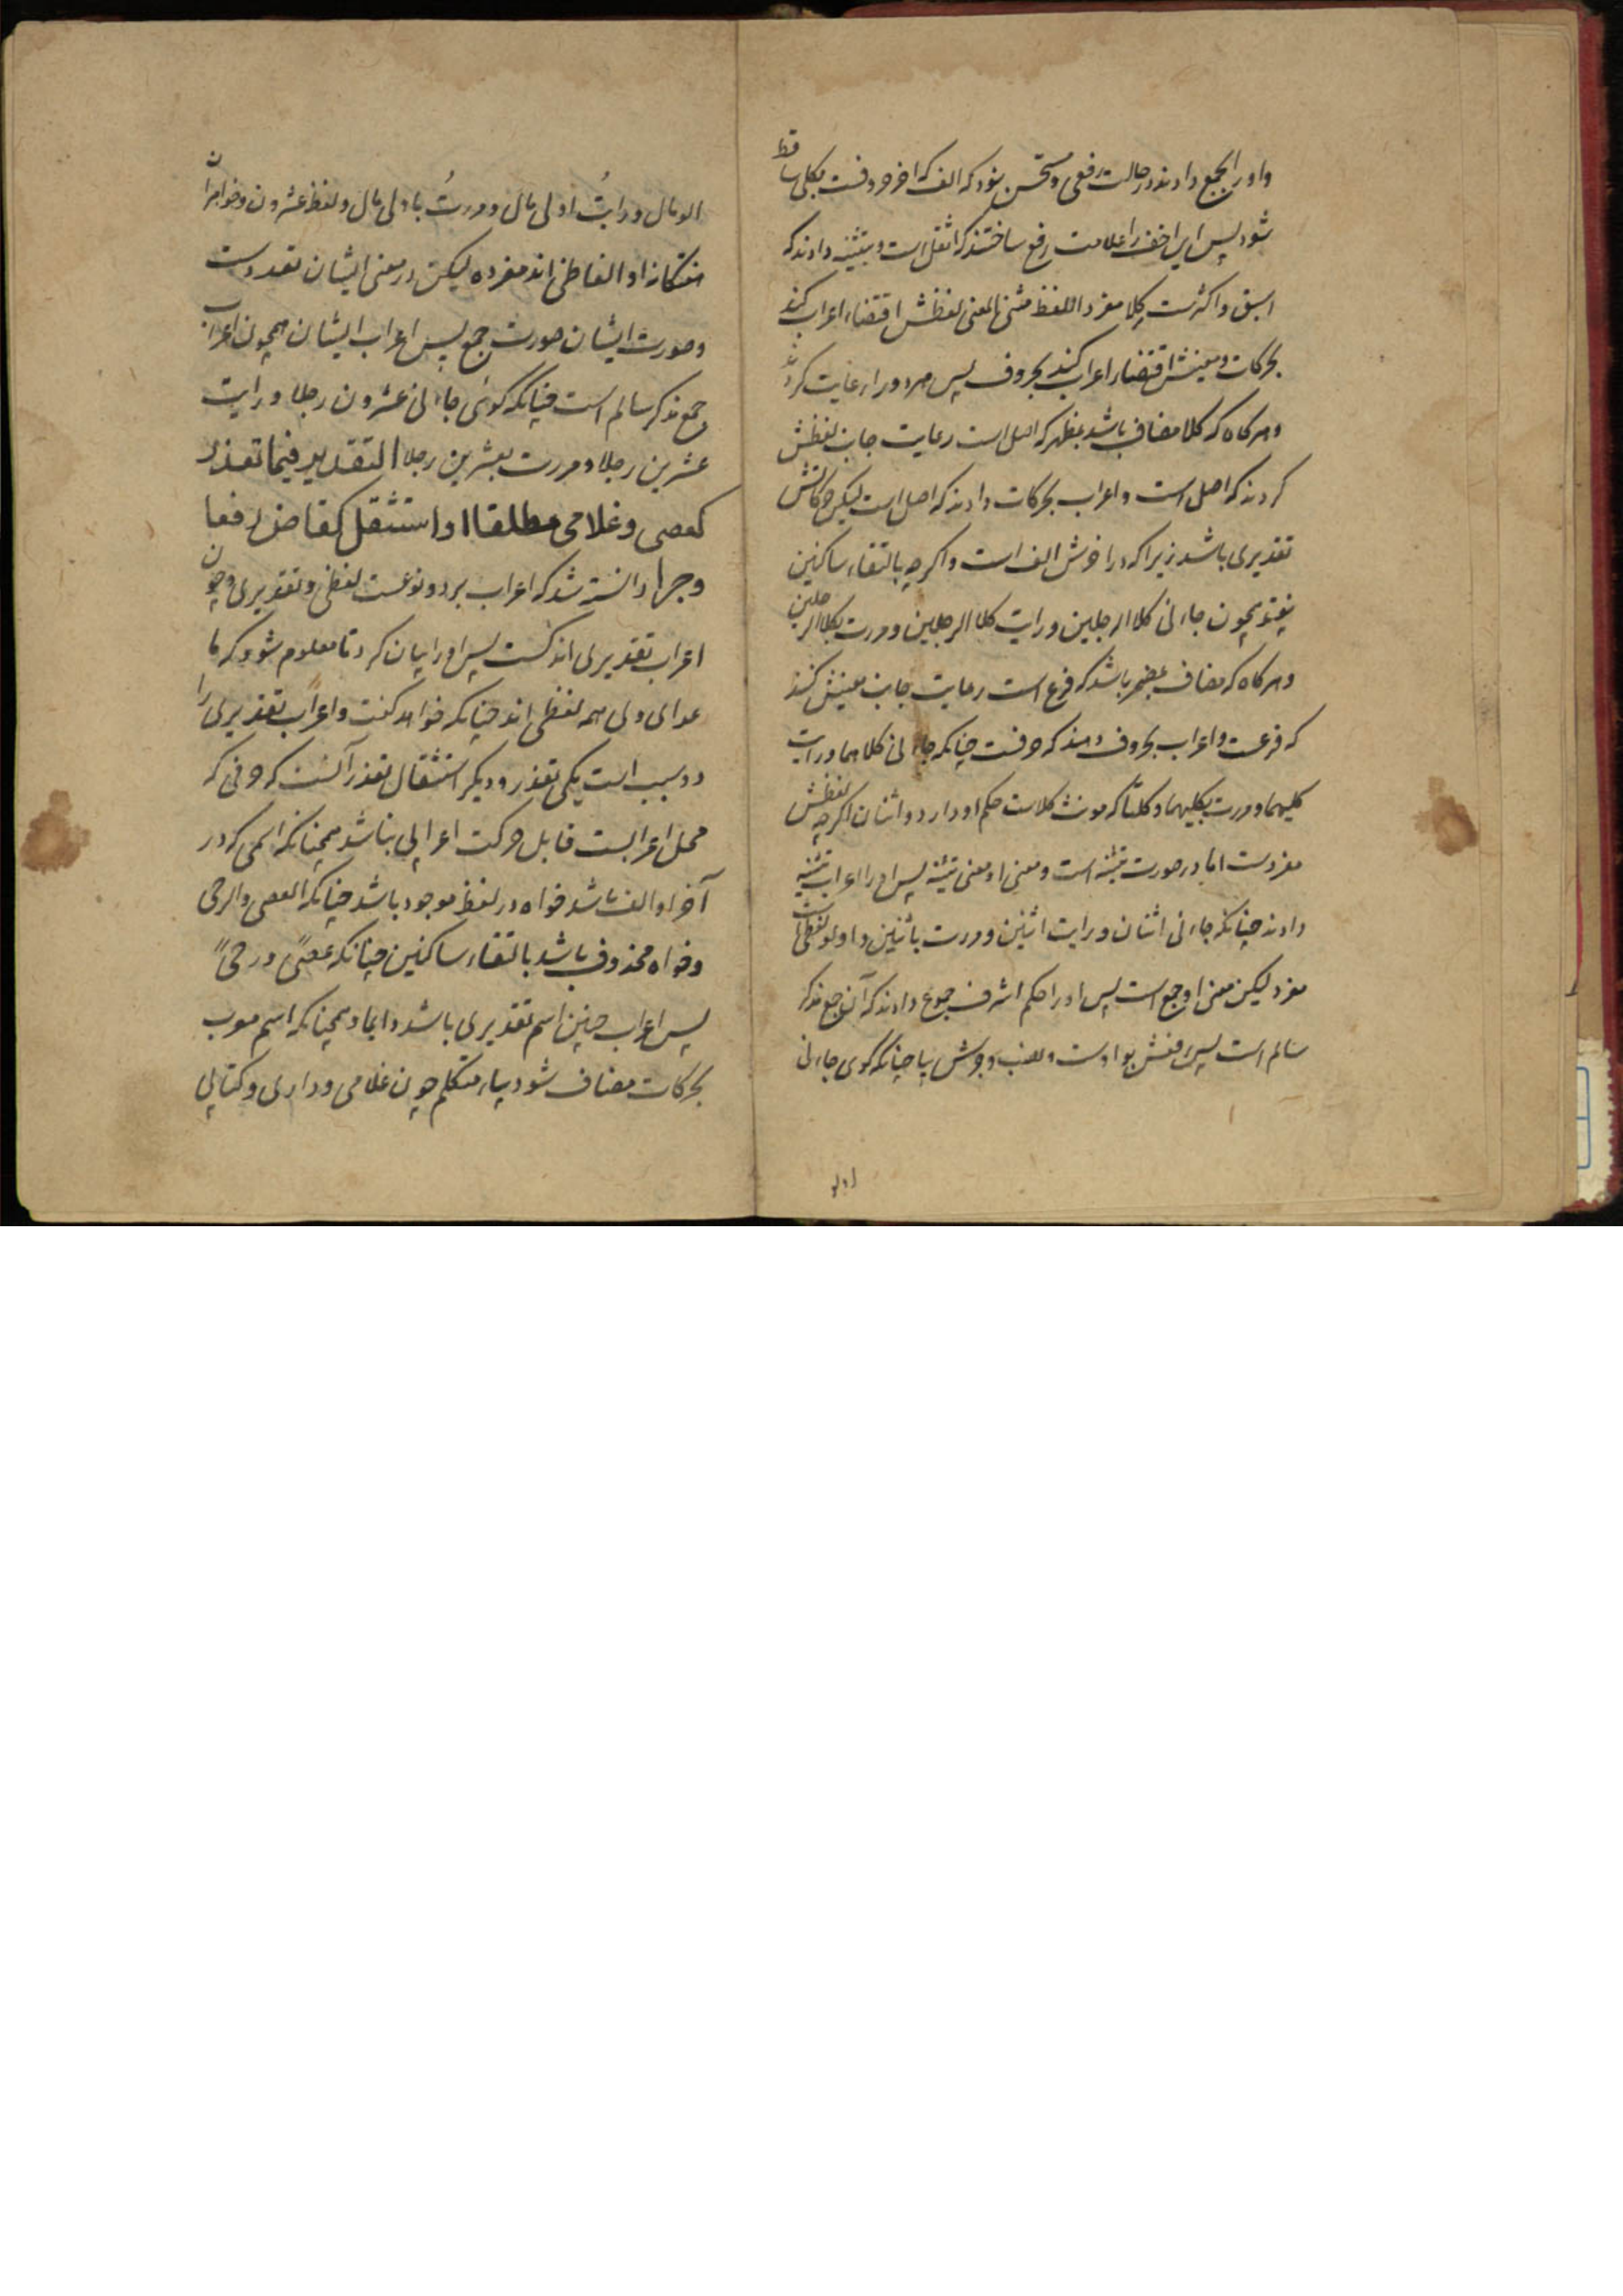 واو را بجمع دادند در حالت رفعی و مستحسن نبود که الف که اخر حروفست بکلی ساقط
شود پس این اخف را علامت رفع ساختند که اثقل است و بتثنیه دادند که
اسبق و اکثرست کلا مفرد اللفظ مثنی المعنی لفظش اقتضاء اعراب کند
بحرکات و معینش اقتضاء اعراب کند بحروف پس هر دو را رعایت کردند
و هرکاه که کلا مضاف باشد بمظهر که اصل است رعایت جانب لفظش
کردند که اصل است و اعراب بحرکات دادند که اصل است لیکن حرکاتش
تقدیری باشد زیرا که در اخرش الف است و اکرچه بالتقاء ساکنین
بیفتد همچون جاءنی کلا الرجلین و رایت کلا الرجلین و مررت بکلا الرجلین
و هرکاه که مضاف بمضمر باشد که فرع است رعایت جانب معینش کنند
که فرعست و اعراب بحروف دهند که حرفست چنانکه جاءنی کلاهما و رایت
کلیهما و مررت بکلیهما و کلتا که مونث کلاست حکم او دارد و اثنان اکرچه لفظش
مفردست اما در صورت تثنیه است و معنی او معنی تثنیه پس او را اعراب تثنیه
دادند چنانکه جاءنی اثنان و رایت اثنین و مررت باثنین و اولو لفظی است
مفرد لیکن معنی او جمع است پس او را حکم اشرف جموع دادند که آن جمع مذکر
سالم است پس رفعش بواوست و نصب و جرش بیا چنانکه کوی جاءنی
اولو
الو مال و رایتُ اولی مال و مررتُ باولی مال و لفظ عشرون و خواهران
هشتکانه او الفاظی اند مفرده لیکن در معنی ایشان تعددست
و صورت ایشان صورت جمع پس اعراب ایشان همچون اعراب
جمع مذکر سالم است چنانکه کوئی جاءنی عشرون رجلا و رایت
عشرین رجلا و مررت بعشرین رجلا التقدیر فیما تعذر
کعصی و غلامی مطلقا او استثقل کقاض رفعا
وجرا دانسته شد که اعراب بر دو نوعست لفظی و تقدیری و چون
اعراب تقدیری اندکست پس او را بیان کرد تا معلوم شود که ما
عدای وی همه لفظی اند چنانکه خواهد کفت و اعراب تقدیری را
دو سبب است یکی تعذر و دیکر استثقال تعذر آنست که حرفی که
محل اعرابست قابل حرکت اعرابی نباشد همچنانکه اسمی که در
آخر او الف باشد خواه در لفظ موجود باشد چنانکه العصی والرحی
و خواه محذوف باشد بالتقاء ساکنین چنانکه عصیً و رحیً
پس اعراب چنین اسم تقدیری باشد دائما و همچنانکه اسم معرب
بحرکات مضاف شود بیاء متکلم چون غلامی و داری و کتابی